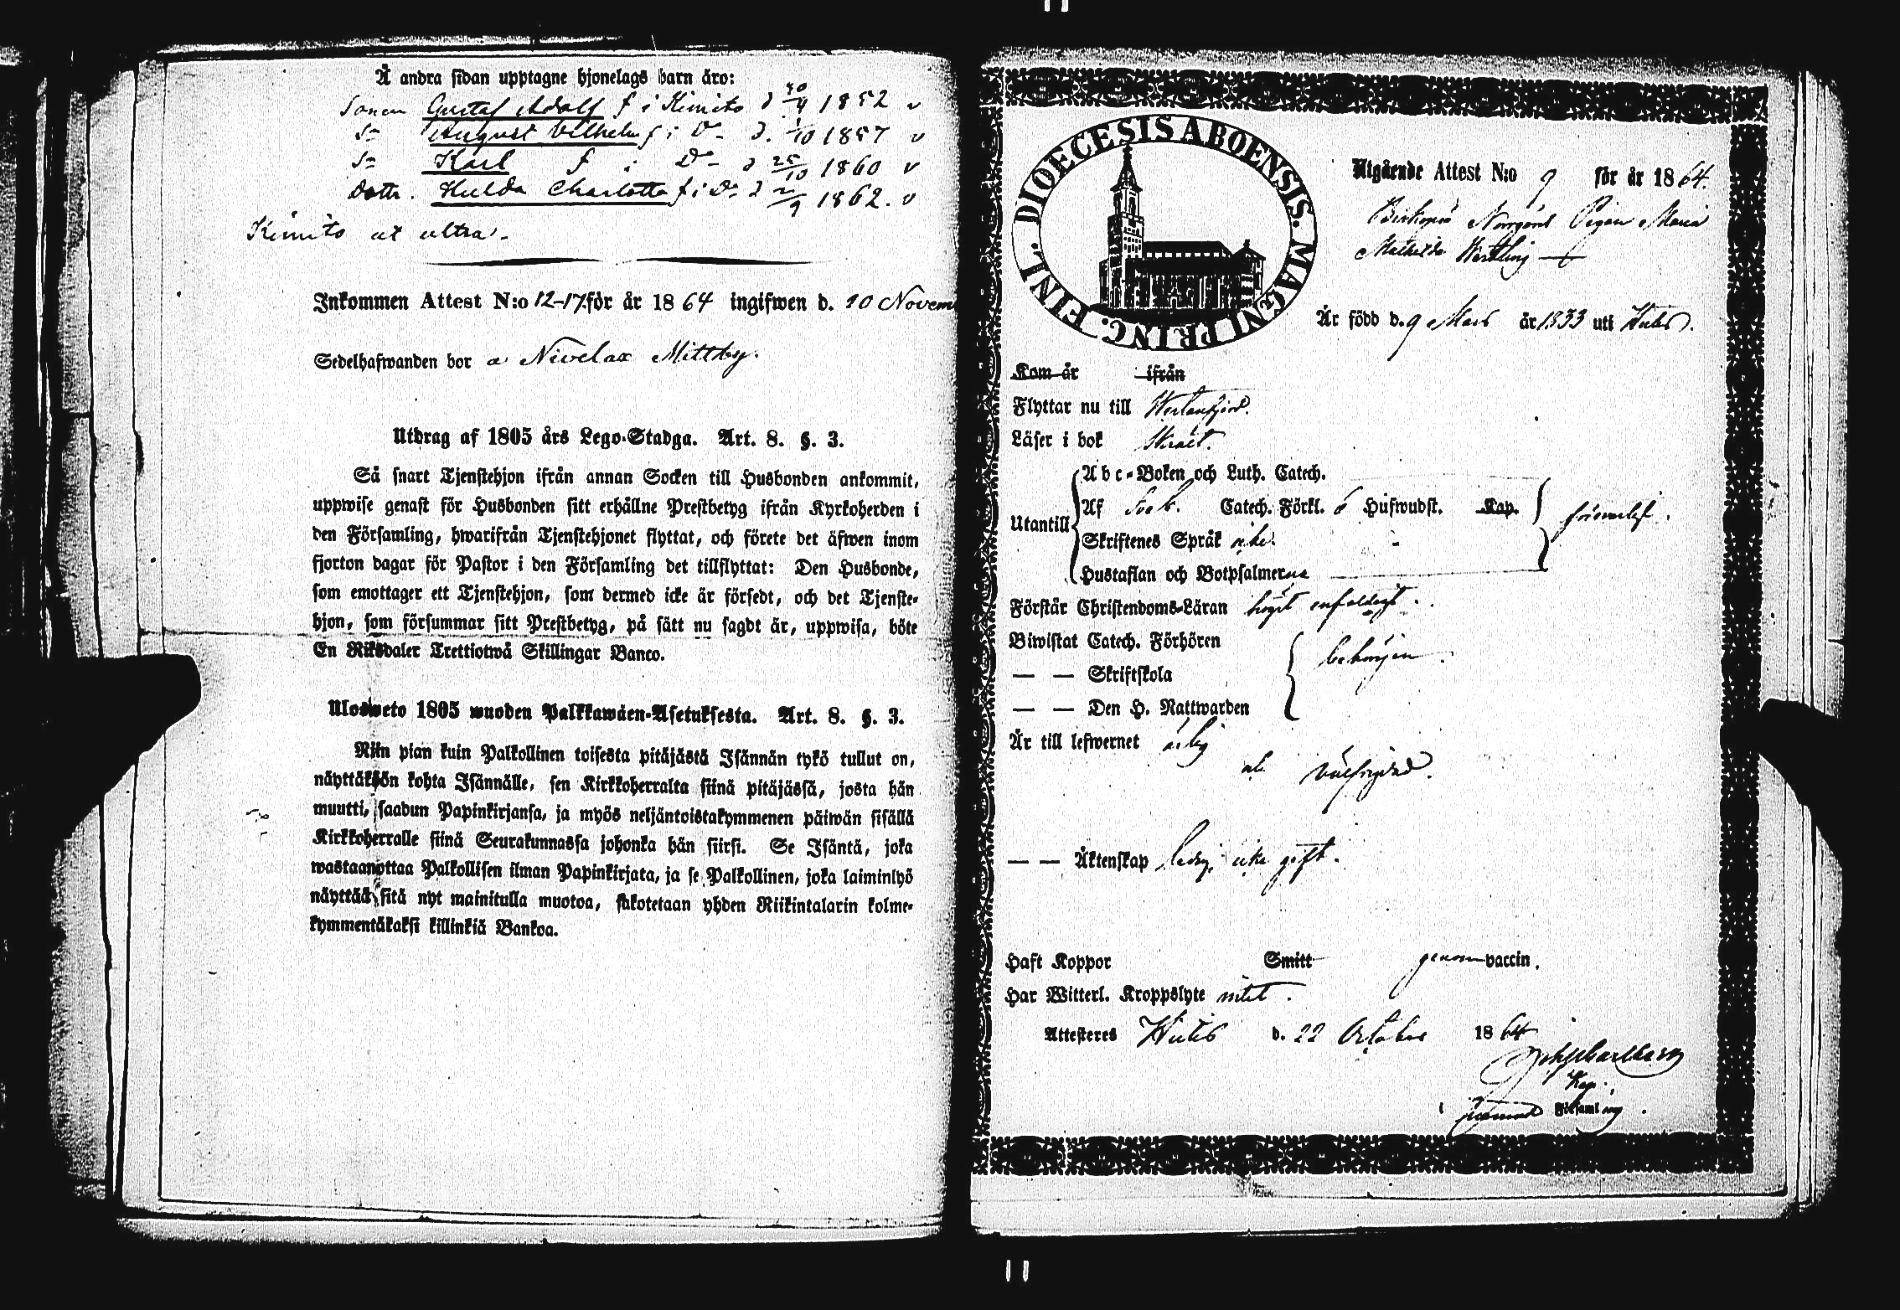 Å andra sidan upptagne hjonelags barn äro:
Sonen Gustaf Adolf f i Kimito d 30/4 1852
Sn August Wilhelm f i Do d. 1/10 1857
Sn Karl f i Do d 25/10 1860
Dottr. Hulda Charlotta f i Do d 2/9 1862.
Kimito ut ultra.
Inkommen Attest N:o 12-17 för år 1864 ingifwen d. 10 Novem
Sedelhafwanden bor å Nivelax Mittby.
Utdrag af 1805 års Lego-Stadga. Art. 8. §. 3.
Så snart Tjenstehjon ifrån annan Socken till Husbonden ankommit,
uppwise genast för Husbonden sitt erhållne Prestbetyg ifrån Kyrkoherden i
den Församling, hwarifrån Tjenstehjonet flyttat, och förete det äfwen inom
fjorton dagar för Pastor i den Församling det tillflyttat: Den Husbonde,
som emottager ett Tjenstehjon, som dermed icke är försedt, och det Tjenste-
hjon, som försummar sitt Prestbetyg, på sätt nu sagdt är, uppwisa, böte
En Riksdaler Trettiotwå Skillingar Banco.
Ulosweto 1805 wuoden Palkkawäen-Asetuksesta. Art. 8. §. 3.
Niin pian kuin Palkollinen toisesta pitäjästä Isännän tykö tullut on,
näyttäköön kohta Isännälle, sen Kirkkoherralta siinä pitäjässä, josta hän
muutti, saadun Papinkirjansa, ja myös neljäntoistakymmenen päiwän sisällä
Kirkkoherralle siinä Seurakunnassa johonka hän siirsi. Se Isäntä, joka
wastaanottaa Palkollisen ilman Papinkirjata, ja se Palkollinen, joka laiminlyö
näyttää sitä nyt mainitulla muotoa, sakotetaan yhden Riikintalarin kolme-
kymmentäkaksi killinkiä Bankoa.
DIOECESIS ABOENSIS. MAGNI PRINC. FINL.
Utgående Attest N:o 9 för år 1864.
Norrgård Pigan Maria
Mathilda
Är född d. 9 Mars år 1833 uti Hitis.
Kom år ifrån
Flyttar nu till Westanfjerd.
Läser i bok
Utantill
Abc-Boken och Luth. Catech.
Af Sveb. Catech. Förkl. 6 Hufwudst. Kap.
Skriftenes Språk icke.
Hustaflan och Botpsalmerne
Förstår Christendoms-Läran högst enfaldigt.
Biwistat Catech. Förhören
— — Skriftskola behörigen.
— — Den H. Nattwarden
Är till lefwernet ärlig
och välfrejdad.
— — Äktenskap ledig, icke gift.
Haft Koppor Smitt genom vaccin.
Har Witterl. Kroppslyte intet.
Attesteres Hitis d. 22 October 1864
Kap.
i Församling.